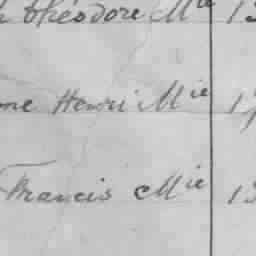 théodore Mie 13
Henri Mie 1
Francis Mie 13